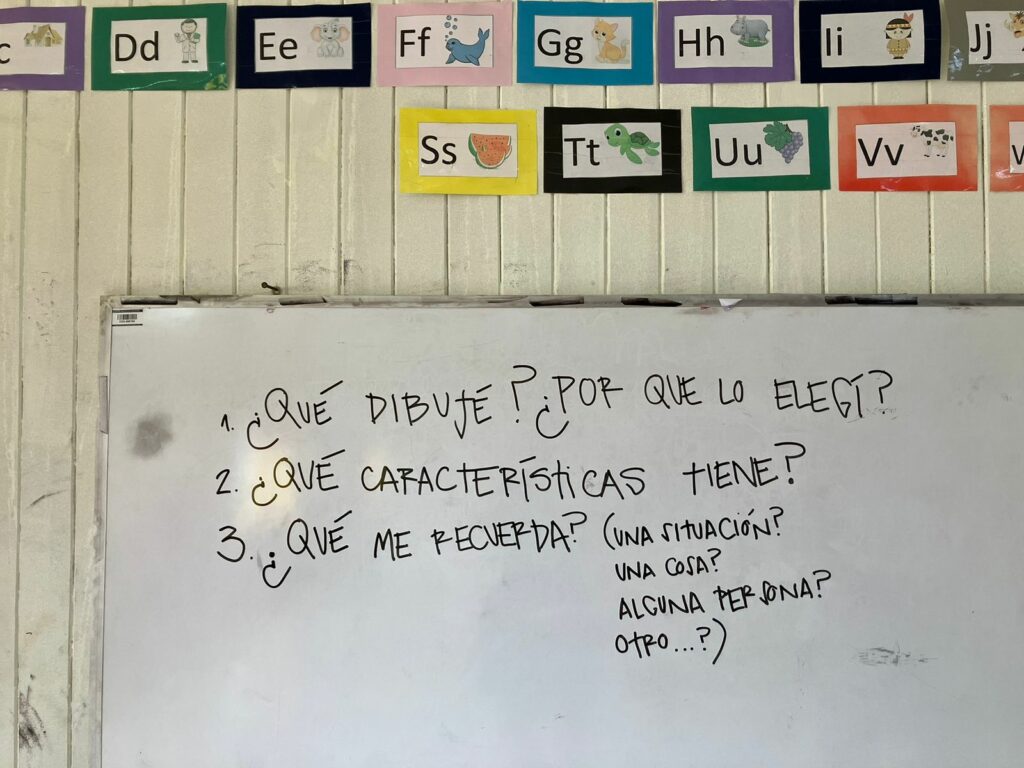 c
Dd
Ee
Ff
Gg
Hh
Ii
Jj
Ss
Tt
Uu
Vv
1. ¿QUÉ DIBUJÉ? ¿POR QUE LO ELEGÍ?
2. ¿QUÉ CARACTERÍSTICAS TIENE?
3. ¿QUÉ ME RECUERDA? (UNA SITUACIÓN?
UNA COSA?
ALGUNA PERSONA?
OTRO...?)